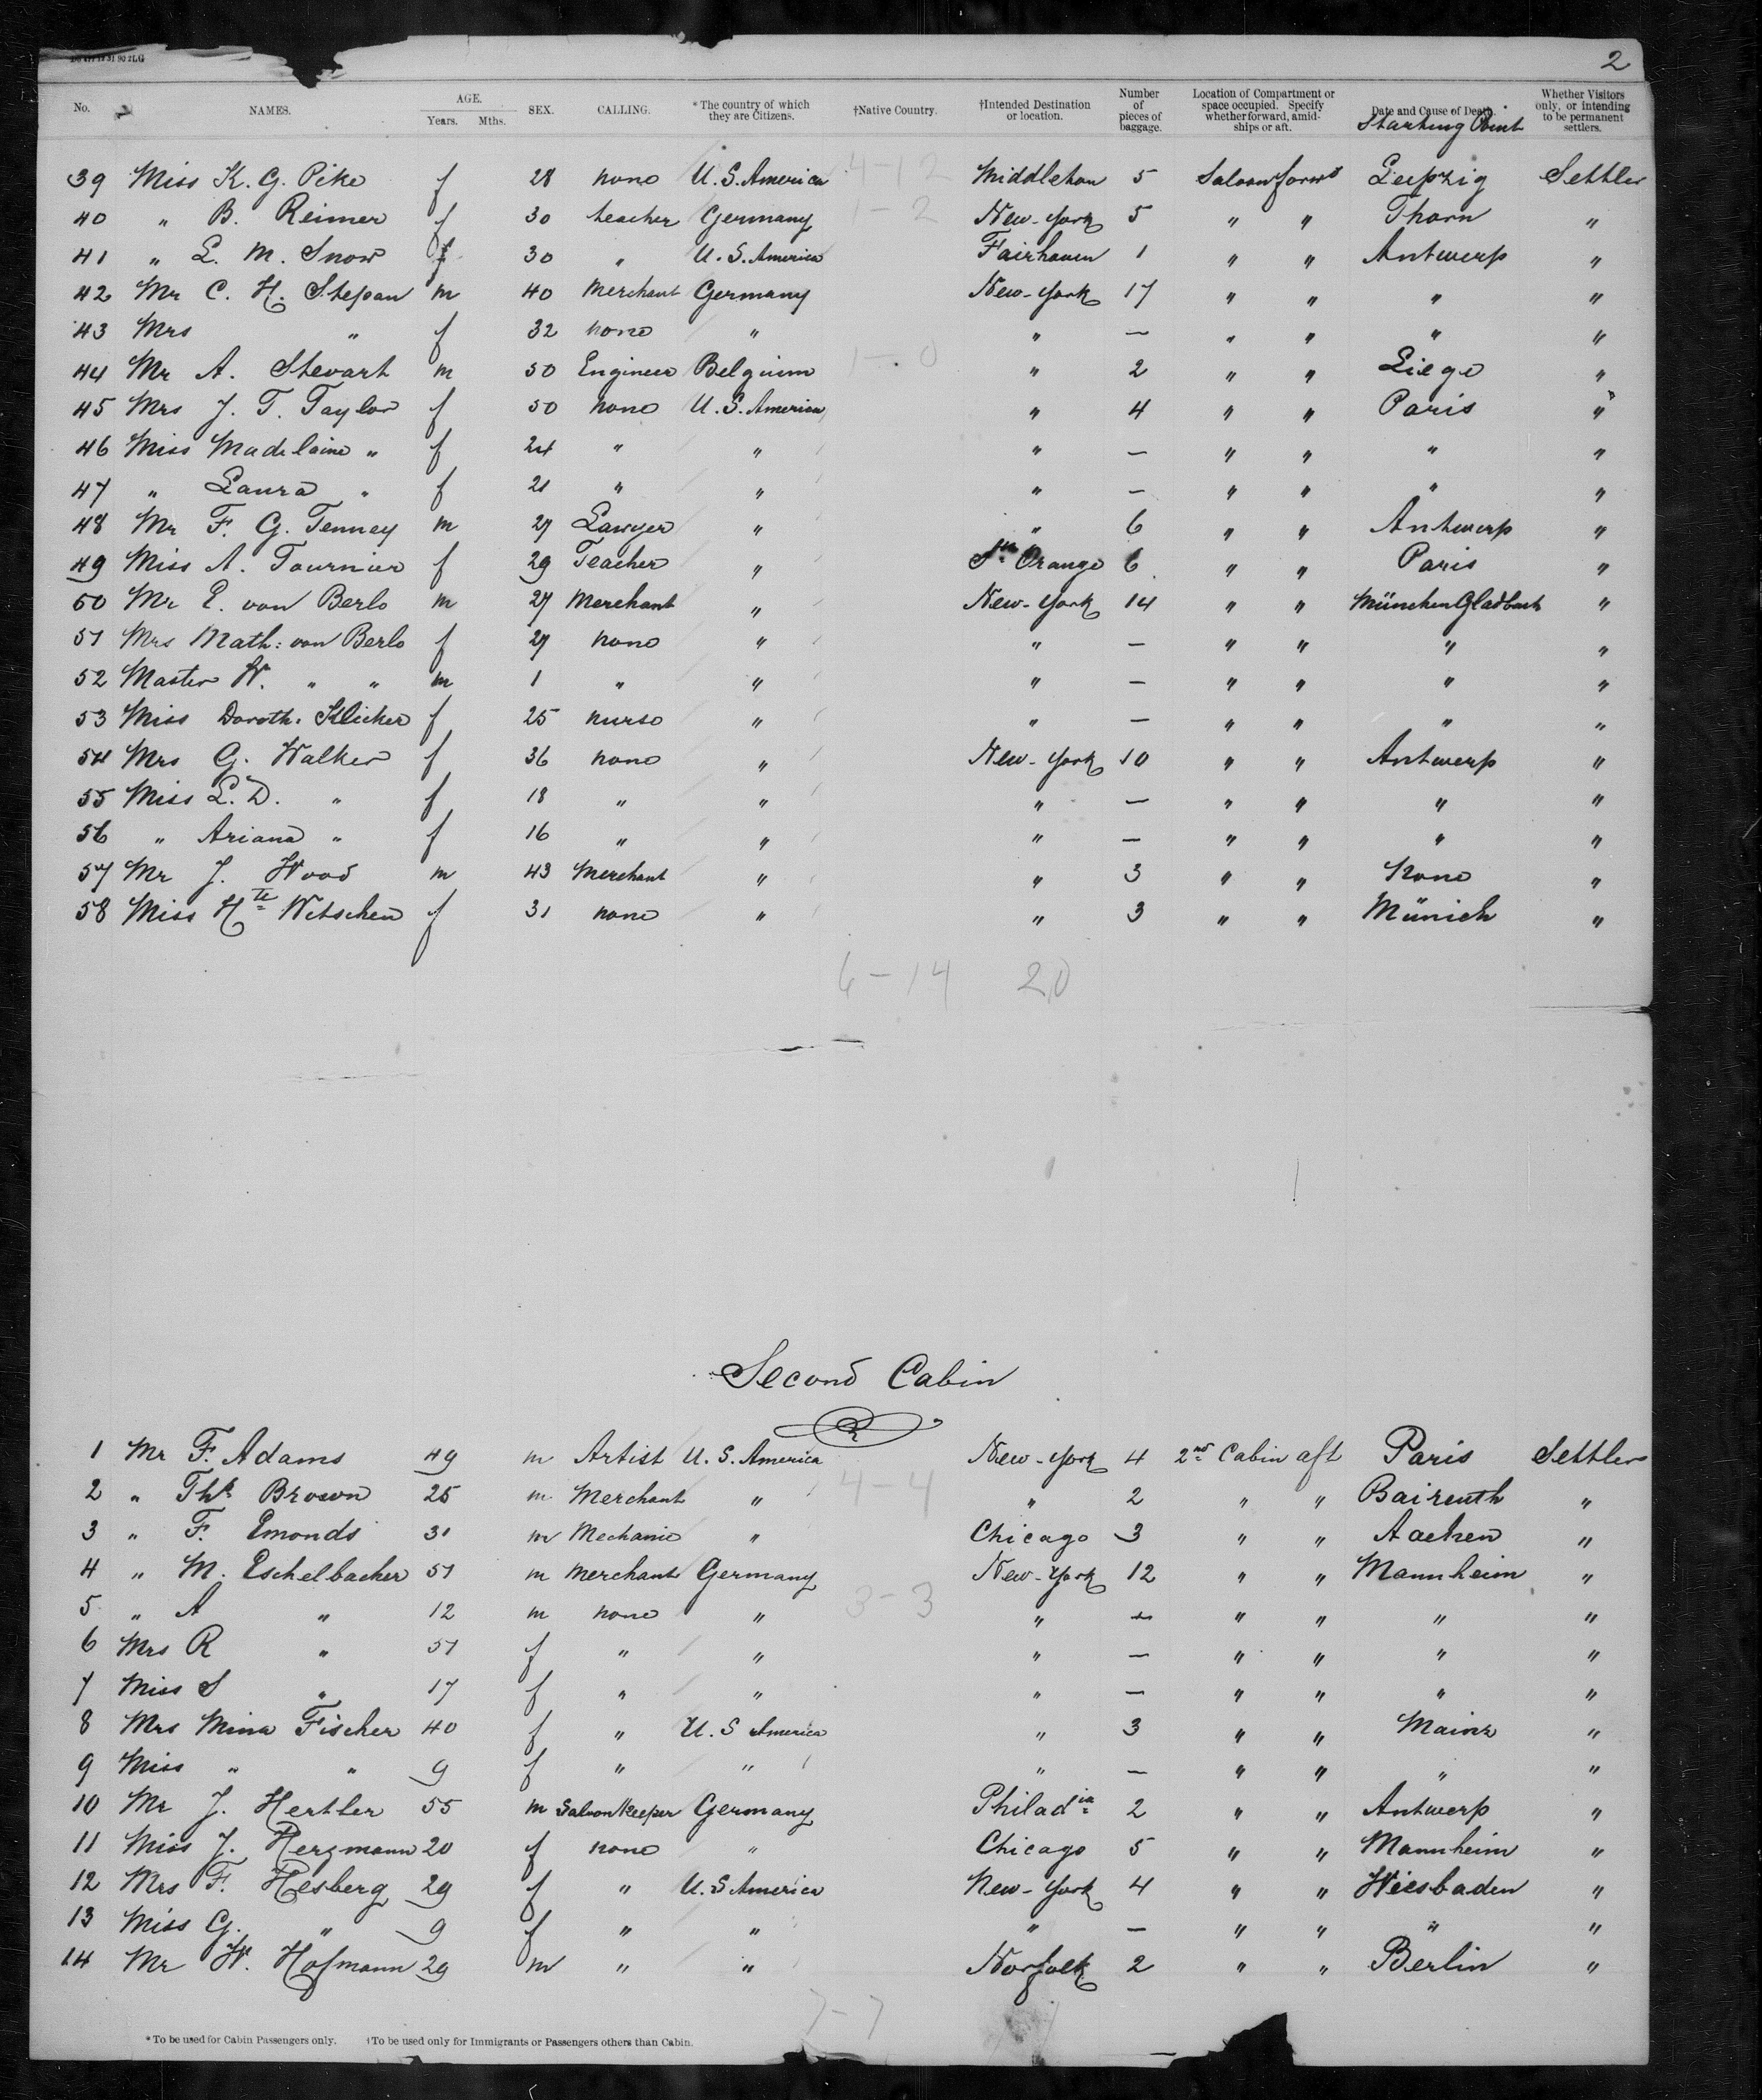 2
No. NAMES. AGE. Years. Mths. SEX. CALLING. *The country of which they are Citizens. †Native Country. †Intended Destination or location. Number of pieces of baggage. Location of Compartment or space occupied. Specify whether forward, amidships or aft. Date and Cause of Death. Starting Point Whether Visitors only, or intending to be permanent settlers.
39 Miss K. G. Pike f 28 none U. S. America 4-12 Middleton 5 Saloon forwd Leipzig Settler
40 " B. Reimer f 30 teacher Germany 1-2 New-York 5 " " Thorn "
41 " L. M. Snow f 30 " U. S. America Fairhaven 1 " " Antwerp "
42 Mr C. H. Stepan m 40 Merchant Germany New-York 17 " " " "
43 Mrs " f 32 none " " — " " " "
44 Mr A. Stevart m 50 Engineer Belgium 1-0 " 2 " " Liege "
45 Mrs J. T. Taylor f 50 none U. S. America " 4 " " Paris "
46 Miss Madelaine " f 24 " " " — " " " "
47 " Laura " f 21 " " " — " " " "
48 Mr F. G. Tenney m 27 Lawyer " " 6 " " Antwerp "
49 Miss A. Tournier f 29 Teacher " Orange 6 " " Paris "
50 Mr E. von Berlo m 27 Merchant " New-York 14 " " München Gladbach "
51 Mrs Math: von Berlo f 27 none " " — " " " "
52 Master W. " " m 1 " " " — " " " "
53 Miss Doroth. Klicker f 25 nurse " " — " " " "
54 Mrs G. Walker f 36 none " New-York 10 " " Antwerp "
55 Miss L. D. " f 18 " " " — " " " "
56 " Ariana " f 16 " " " — " " " "
57 Mr J. Wood m 43 Merchant " " 3 " " "
58 Miss Hte Witschen f 31 none " " 3 " " Münich "
6-14 20
Second Cabin
1 Mr F. Adams 49 m Artist U. S. America New-York 4 2nd Cabin aft Paris Settler
2 " Ths Brown 25 m Merchant " 4-4 " 2 " " Baireuth "
3 " F. Emonds 31 m Mechanic " Chicago 3 " " Aachen "
4 " M. Eschelbacher 51 m Merchant Germany New-York 12 " " Mannheim "
5 " A " 12 m none " 3-3 " — " " " "
6 Mrs R " 51 f " " " — " " " "
7 Miss S " 17 f " " " — " " " "
8 Mrs Mina Fischer 40 f " U. S America " 3 " " Mainz "
9 Miss " " 9 f " " " — " " " "
10 Mr J. Hertler 55 m Saloon Keeper Germany Philadia 2 " " Antwerp "
11 Miss J. Herzmann 20 f none " Chicago 5 " " Mannheim "
12 Mrs F. Hesberg 29 f " U. S America New-York 4 " " Wiesbaden "
13 Miss G. " 9 f " " " — " " " "
14 Mr W. Hofmann 29 m " " Norfolk 2 " " Berlin "
7-7
*To be used for Cabin Passengers only. †To be used only for Immigrants or Passengers others than Cabin.